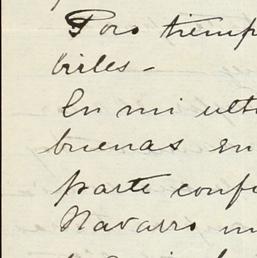 Poro tiemp
biles-
En mi ulti
buenas en
parte conf
Navarro m